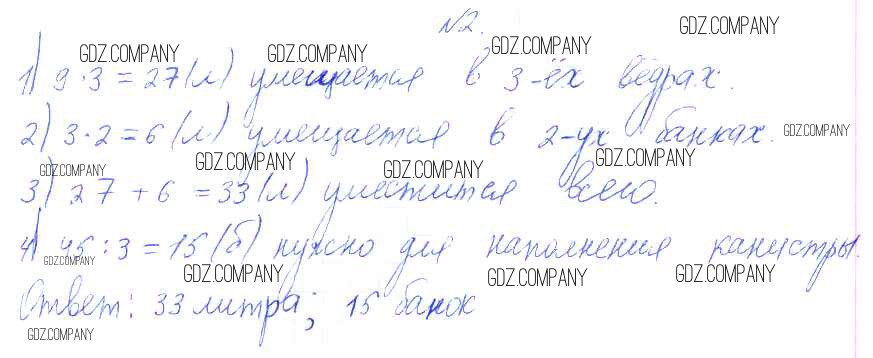 №2.
GDZ.COMPANY GDZ.COMPANY GDZ.COMPANY GDZ.COMPANY
1) 9·3=27(л) умещается в 3-ёх вёдрах.
2) 3·2=6(л) умещается в 2-ух банках. GDZ.COMPANY
GDZ.COMPANY GDZ.COMPANY GDZ.COMPANY GDZ.COMPANY
3) 27+6=33(л) уместится всего.
4) 45:3=15(б) нужно для наполнения канистры.
GDZ.COMPANY GDZ.COMPANY GDZ.COMPANY GDZ.COMPANY
Ответ: 33 литра; 15 банок
GDZ.COMPANY